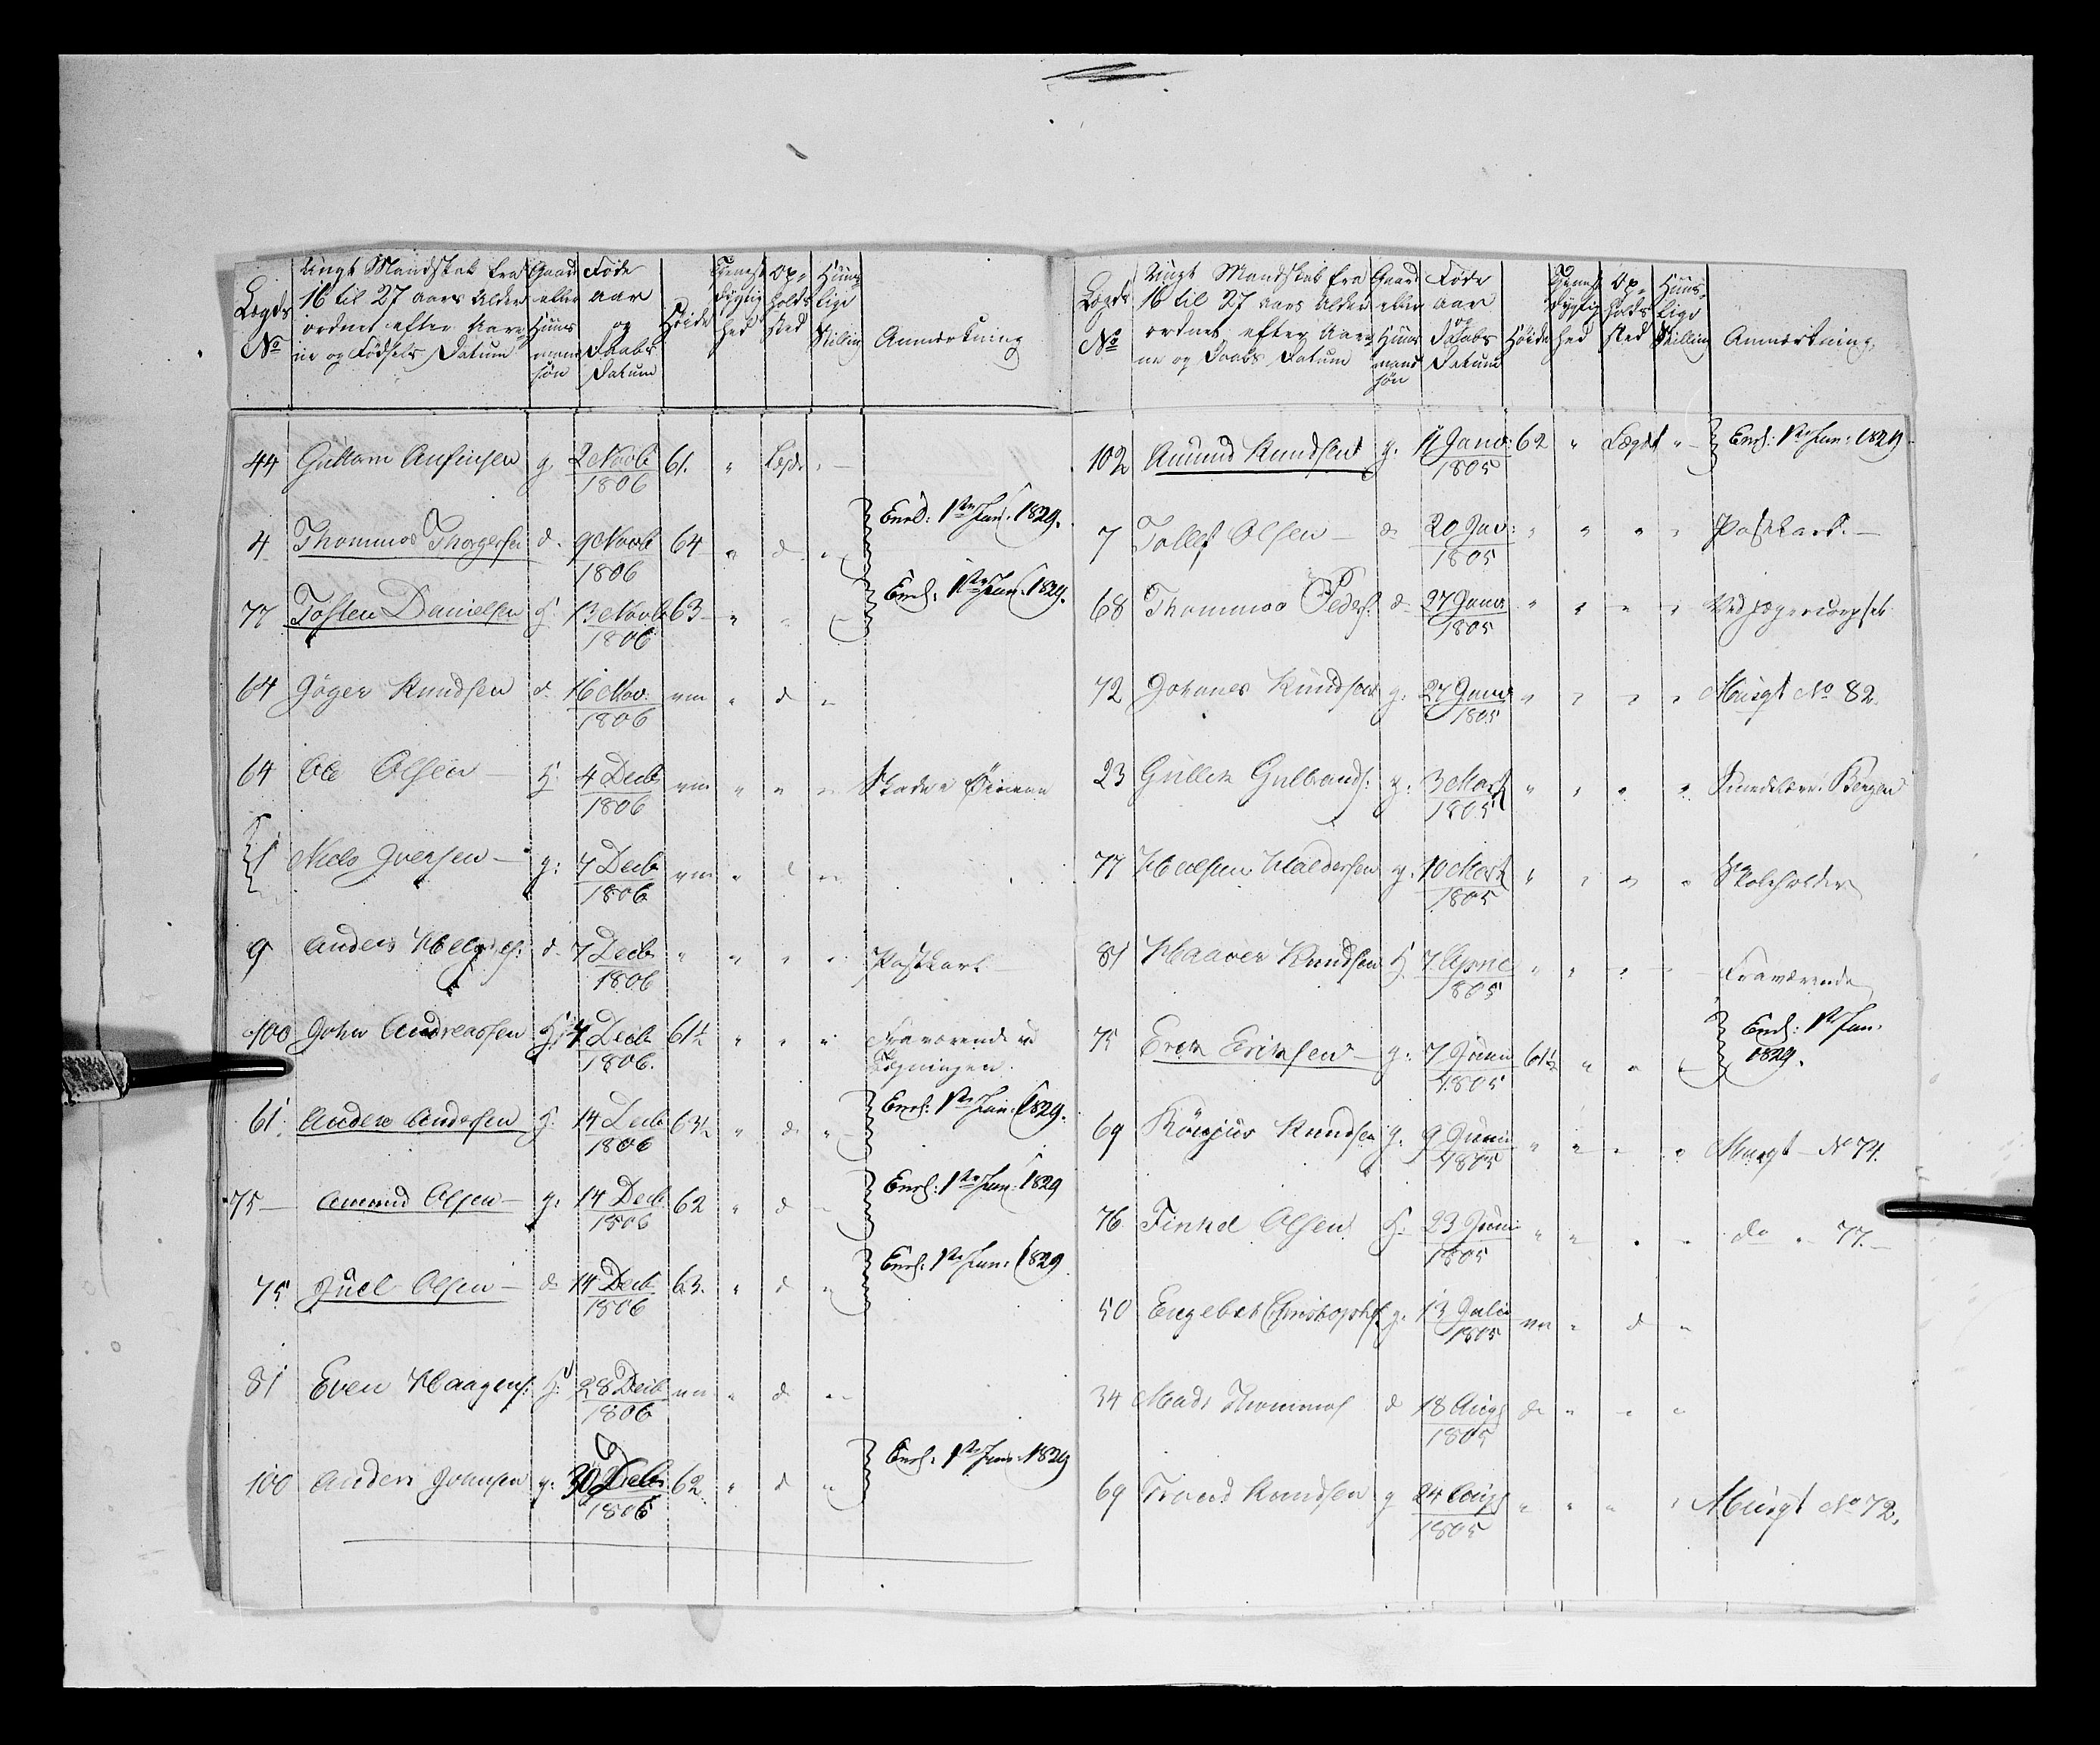 Lægds No | Ungt Mandskab fra 16 til 27 aars Alder ordnet efter Aare ne og Fødsels Datum | Gaard eller Huusmand søn | Føde aar og Daabs Datum | Höide | Tjenestdygtighed | Opholdssted | Huuslige Stilling | Anmærkning
44 Guttorm Anfinsen g. 2 Novb 1806 61. " Lægd. "
4 Thommas Thorgersen d. 9 Novb 1806 64 " d " Enrl: 1ste Jan: 1829.
77 Tosten Danielsen H. 13 Novb 1806 63 " " " Enrl: 1ste Jan: 1829.
64 Jöger Knudsen d. 16 Nov. 1806 um " d "
64 Ole Olsen H. 4 Decb 1806 um " " " Skade i Öinene
1 Niels Iversen g: 7 Decb 1806 um " d "
9 Anders d. 7 Decb 1806 " " " " Postkarl
100 John Andreassen H: 7 Decb 1806. 61½ " " " Fraværende ved
Lægningen.
61 Anders Andersen H. 14 Decb 1806 63½ " d. " Enrl: 1ste Jan: 1829.
75 Amund Olsen g. 14 Decb 1806 62 " d " Enrl: 1ste Jan: 1829
75 Juel Olsen d. 14 Decb 1806 63. " d " Enrl: 1ste Jan: 1829
81 Even Haagens: H: 28 Decb 1806 um " d "
100 Anders Johnsen g. 30 Decb 1806 62. " d " Enrl: 1ste Jan: 1829
Lægds No | Ungt Mandskab fra 16 til 27 aars Alder ordnet efter Aarene og Daabs Datum | Gaard eller Huusmand søn | Føde aar og Daabs Datum | Höide | Tjenestdygtighed | Opholdssted | Huuslige Stilling | Anmærkning.
102 Amund Knudsen g. 1 Janv: 1805 62 " Lægdet " Enrl: 1ste Jan: 1829
7 Tollef Olsen d. 20 Jav: 1805 " " " " Postkarl.
68 Thommas Peders: d. 27 Janv 1805 " " " " Ved Jægercorpset
72 Johanes Knudsen g. 27 Janv 1805 " " " " Afligt No 82.
23 Gullik Gulbrands: g. 3 Marts 1805 " " " " Bergen
77 Halsten Haldorsen g. 10 Marts 1805 " " " " Skoleholder
81 Haaver Knudsen H. 7 April 1805 " " " " Fraværende
75 Erik Eriksen g. 7 Juni 1805 61½ " " " Enrl: 1ste Jan. 1829.
69 Knudsen g. 9 Juni 1805 " " " " No 74.
76 Finkel Olsen H. 23 Juni 1805 " " " " do " 77.
50 Engebret Christophs: g. 13 Julii 1805 um " d "
34 Mads Thommas: d 18 Augs 1805 do " " "
69 Trond Knudsen g 24 Augs 1805 " " " " No 72.